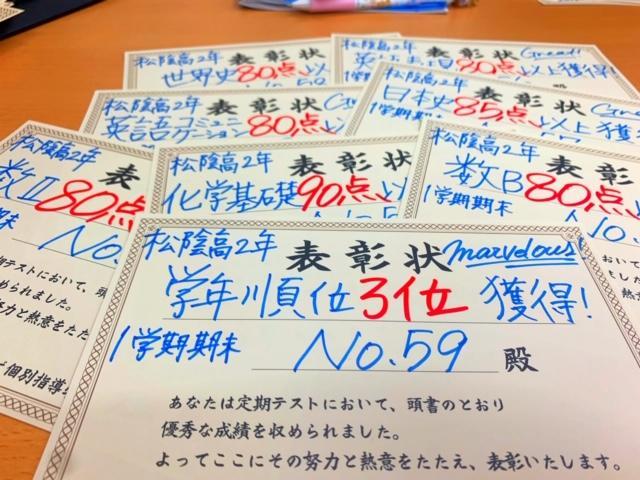 松陰高2年
表彰状
世界史80点以
松陰高2年
表彰状
Great!
80点以上獲得!
1学期
松陰高2年
表彰状
英語コミュニ
ケーション80点
松陰高2年
表彰状
日本史85点以上獲
1学期期
松陰高2年
表
数Ⅱ80点
No.
期テストにおいて、頭書
められました。
の努力と熱意をたた
個別指導
松陰高2年
表彰状
化学基礎90点以
松陰高2年
表彰状
数B80点
1学期期末
No.
松陰高2年
表彰状
marvelous!
学年順位3位獲得!
1学期期末
No.59 殿
あなたは定期テストにおいて、頭書のとおり
優秀な成績を収められました。
よってここにその努力と熱意をたたえ、表彰いたします。